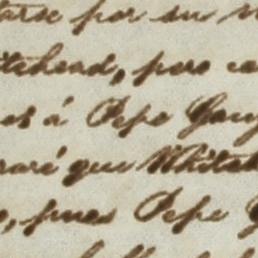 tarse por su
itehead, pero
es á Pepe Gonz
raré que Whiteh
, pues Pepe G